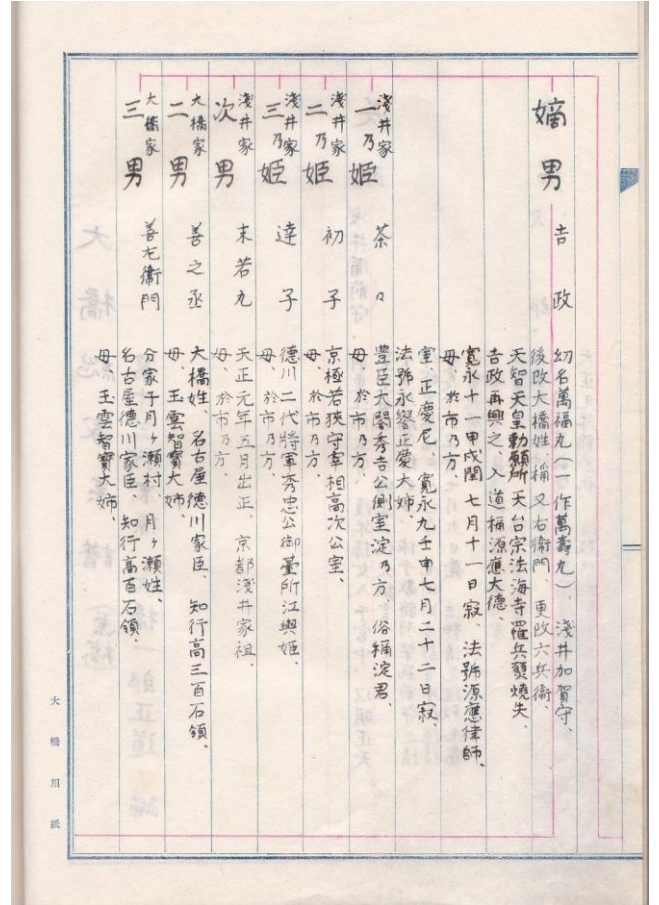 嫡男 吉政 幼名萬福丸(一作萬壽丸)、淺井加賀守、
後改大橋姓、稱又右衞門、更改六兵衞、
天智天皇勅願所天台宗法海寺罹兵燹燒失、
吉政再興之、入道稱源應大德、
寬永十一甲戌閏七月十一日寂、法號源應律師、
母、於市乃方、
室正慶尼、寬永九壬申七月二十二日寂、
法號永譽正慶大姉、
淺井家 一乃姬 茶々 豐臣大閤秀吉公側室淀乃方、俗稱淀君、
母、於市乃方、
淺井家 二乃姬 初子 京極若狹守宰相高次公室、
母、於市乃方、
淺井家 三乃姬 達子 德川二代將軍秀忠公御臺所江與姬、
母、於市乃方、
淺井家 次男 末若丸 天正元年五月出正、京都淺井家祖、
母、於市乃方、
大橋家 二男 善之丞 大橋姓、名古屋德川家臣、知行高三百石領、
母、玉雲智寶大姉、
大橋家 三男 善左衞門 分家子月ヶ瀨村、月ヶ瀨姓、
名古屋德川家臣、知行高百石領、
母、玉雲智寶大姉、
大橋用紙